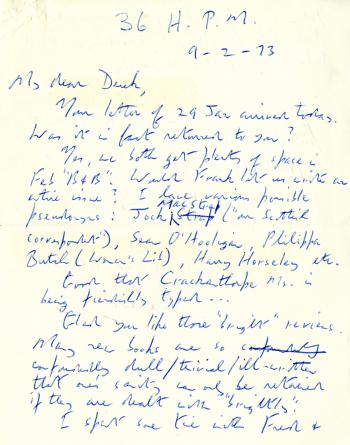 36 H.P.M.
9-2-73
My dear Derek,
Your letter of 29 Jan arrived today.
Was it in fact returned to you?
Yes, we both got plenty of space in
Feb "B&B". Would Frank let us write an
entire issue? I have various possible
pseudonyms: Jock MacStrap ("our Scottish
correspondent"), Sean O'Hooligan, Philippa
Butch (Women's Lib), Harry Horseley etc.
Good that Crackanthorpe Ms. is
being fiendishly typed...
Glad you like those "bright" reviews.
Many new books are so confoundedly
confoundedly dull/trivial/ill-written
that one's sanity can only be retained
if they are dealt with "brightly".
I spent some time with Fred &